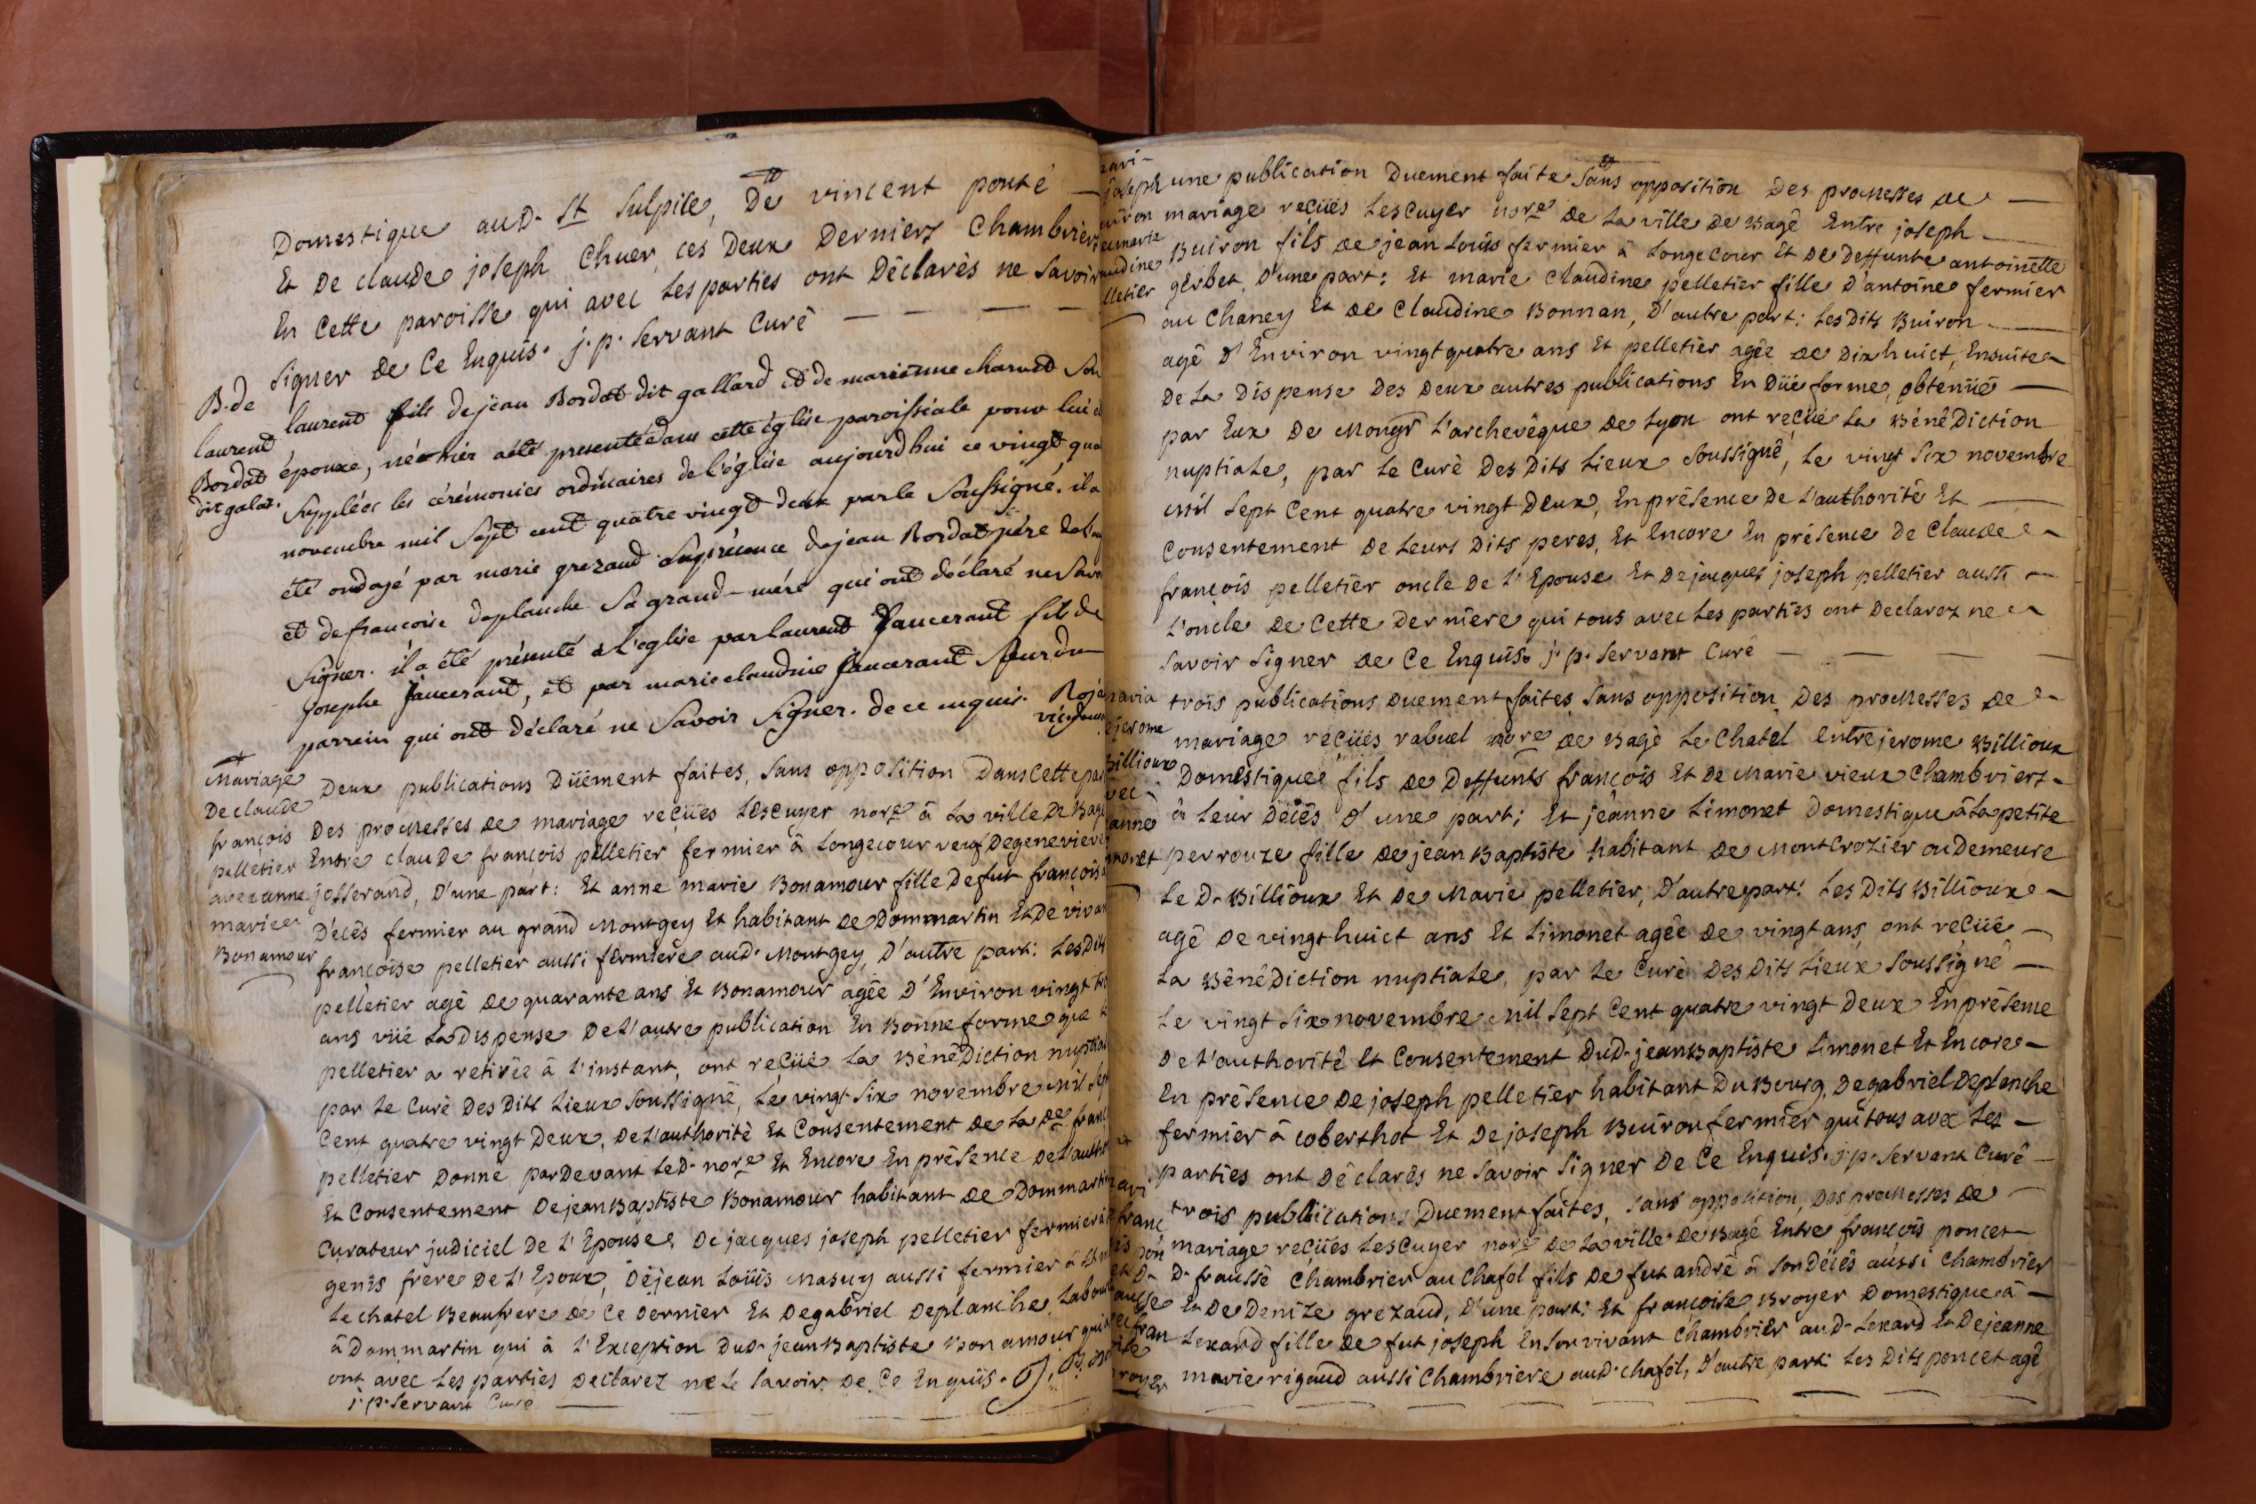 Domestique aud. St Sulpice, De vincent pouté —
Et De claude joseph Chuer, ces Deux Derniers Chambriers
En Cette paroisse qui avec Les parties ont Déclarés ne Savoir
Signer De Ce Enquis. j. p. Servant Curé — — — —
B. de
laurent
Bordat
dit galat.
laurent fils de jean Bordat dit gallard et de marie charvet Son
épouse, né hier a été presenté dans cette église paroissiale pour lui
Suppléer les cérémonies ordinaires de l'église aujourd'hui ce vingt qua
novembre mil Sept cent quatre vingt deux par le Soussigné. il a
été ondoyé par marie grezaud Enprésence de jean Bordat père
et de francoise deplanche Sa grand-mère qui ont déclaré ne Savoir
Signer. il a été présenté à l'eglise par laurent Jauceraut fils de
josephe Jauceraut, et par marie claudine Jauceraut Sœur du
parrein qui ont déclaré ne Savoir Signer. de ce enquis.
Mariage
De claude
françois
pelletier
avec anne
marie
Bonamour
Deux publications Düement faites, Sans opposition Dans Cette par
Des promesses De mariage reçües Lescuyer nore à La ville De Bagé
Entre claude françois pelletier fermier à Longecour veuf De genevieve
josserand, D'une part: Et anne marie Bonamour fille De fut françois
Décés fermier au grand Montgey Et habitant De Dommartin Et De vivante
françoise pelletier aussi fermiere aud. Montgey, D'autre part: Les Dits
pelletier agé De quarante ans Et Bonamour agée D'Environ vingt
ans vüe La Dispense De L'autre publication En Bonne forme que
pelletier a retirée à l'instant, ont reçüe La Bénédiction nuptiale
par Le Curé Des Dits Lieux Soussigné, Le vingt Six novembre Mil Sept
Cent quatre vingt Deux, De l'authorité Et Consentement De La De
pelletier Donné par Devant Led. nore Et Encore En présence De l'autho
Et Consentement De jean Baptiste Bonamour habitant De Dommartin
Curateur judiciel De l'Epouse, De jacques joseph pelletier fermier
genis frere De l'Epoux, De jean Loüis Masuy aussi fermier à
Le chatel Beaufrere De Ce Dernier Et De gabriel Deplanche, Labour
à Dommartin qui à l'Exception Dud. jean Baptiste Bonamour qui
ont avec Les parties Declarez ne Le Savoir De Ce Enquis.
j. p. Servant Curé
une publication Duement faite Sans opposition Des promesses De —
mariage reçües Lescuyer nore De La ville De Bagé Entre joseph —
Buiron fils De jean Loüis fermier à Longecour Et De Deffunte antoinette
gerbet, D'une part: Et marie Claudine pelletier fille D'antoine fermier
au Chaney Et De Claudine Bonnan, D'autre part: Les Dits Buiron —
agé D'Environ vingt quatre ans Et pelletier agée De Dix huict, Ensuite
De La Dispense Des Deux autres publications En Düe forme, obtenüe —
par Eux De Mongr L'archevêque De Lyon ont reçüe La Bénédiction
nuptiale, par Le Curé Des Dits Lieux Soussigné, Le vingt Six novembre
Mil Sept Cent quatre vingt Deux, En présence De l'authorité Et —
Consentement De Leurs Dits peres, Et Encore En présence De Claude
françois pelletier oncle De l'Epouse Et De jacques joseph pelletier aussi
L'oncle De Cette Derniere qui tous avec Les parties ont Declarez ne
Savoir Signer De Ce Enquis. j. p. Servant Curé — — —
trois publications Duement faites, Sans opposition, Des promesses De
mariage reçües rabuel nore De Bagé Le Chatel Entre jerome Billioux
Domestique fils De Deffunts françois Et De Marie vieux Chambriers
à Leur Décès D'une part; Et jeanne Limonet Domestique à La petite
perrouze fille De jean Baptiste habitant De MontCrozier ou Demeure
Le D. Billioux Et De Marie pelletier, D'autre part: Les Dits Billioux
agé De vingt huict ans Et Limonet agée De vingt ans, ont reçüe —
La Bénédiction nuptiale, par Le Curé Des Dits Lieux Soussigné —
Le vingt Six novembre Mil Sept Cent quatre vingt Deux En présence
De l'authorité Et Consentement Dud. jean Baptiste Limonet Et Encore —
En présence De joseph pelletier habitant Du Bourg, De gabriel Deplanche
fermier à coberthot Et De joseph Buiron fermier qui tous avec Les —
parties ont Déclarés ne Savoir Signer De Ce Enquis. j. p. Servant Curé —
trois publications Duement faites, Sans opposition, Des promesses De —
mariage reçües Lescuyer nore De La ville De Bagé Entre françois poncet
D. fraussé Chambrier au Chafol fils De fut andré à Son Décés aussi Chambrier
Et De Denize grezaud, D'une part: Et françoise Broyer Domestique à —
Lexard fille De fut joseph En Son vivant Chambrier aud. Lexard Et De jeanne
marie rigaud aussi Chambriere aud. chafol, D'autre part: Les Dits poncet agé